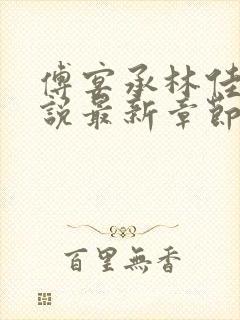 傅宴承林佳
說最新章節
百里無香